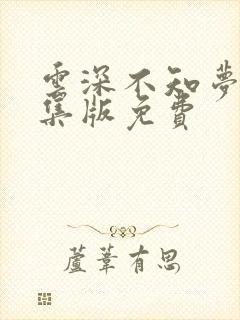 雲深不知夢
集版免費
蘆葦有思